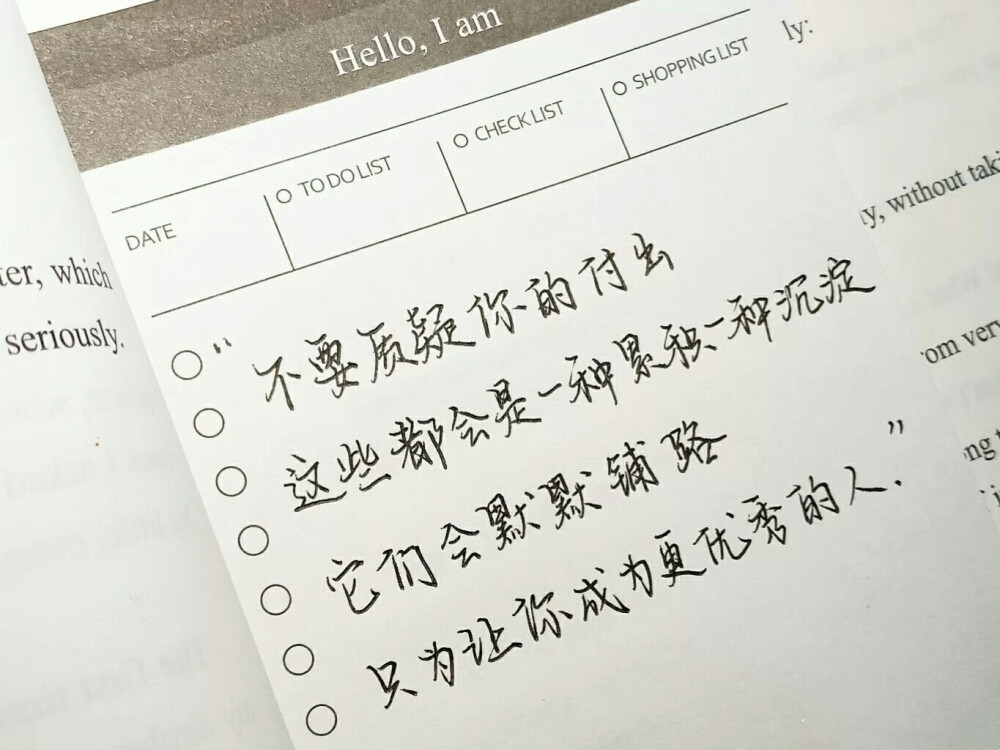 Hello, I am
DATE
TO DO LIST
CHECK LIST
SHOPPING LIST
“不要质疑你的付出
这些都会是一种累积一种沉淀
它们会默默铺路
只为让你成为更优秀的人.”
which
seriously.
ly:
without
very